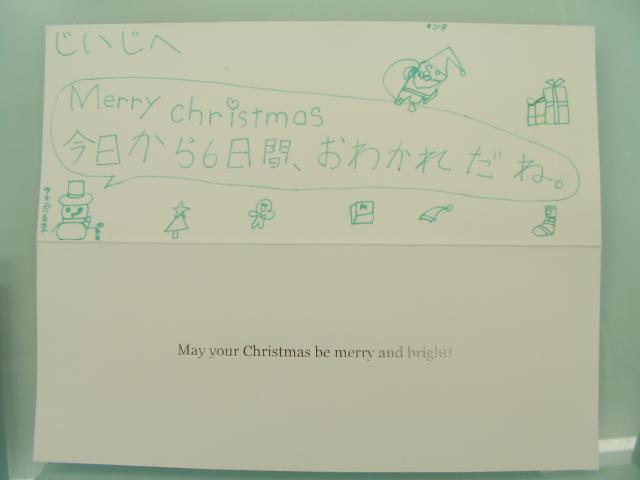 じいじへ
サンタ
Merry christmas
今日から6日間、おわかれだね。
ゆきだるま
May your Christmas be merry and bright!